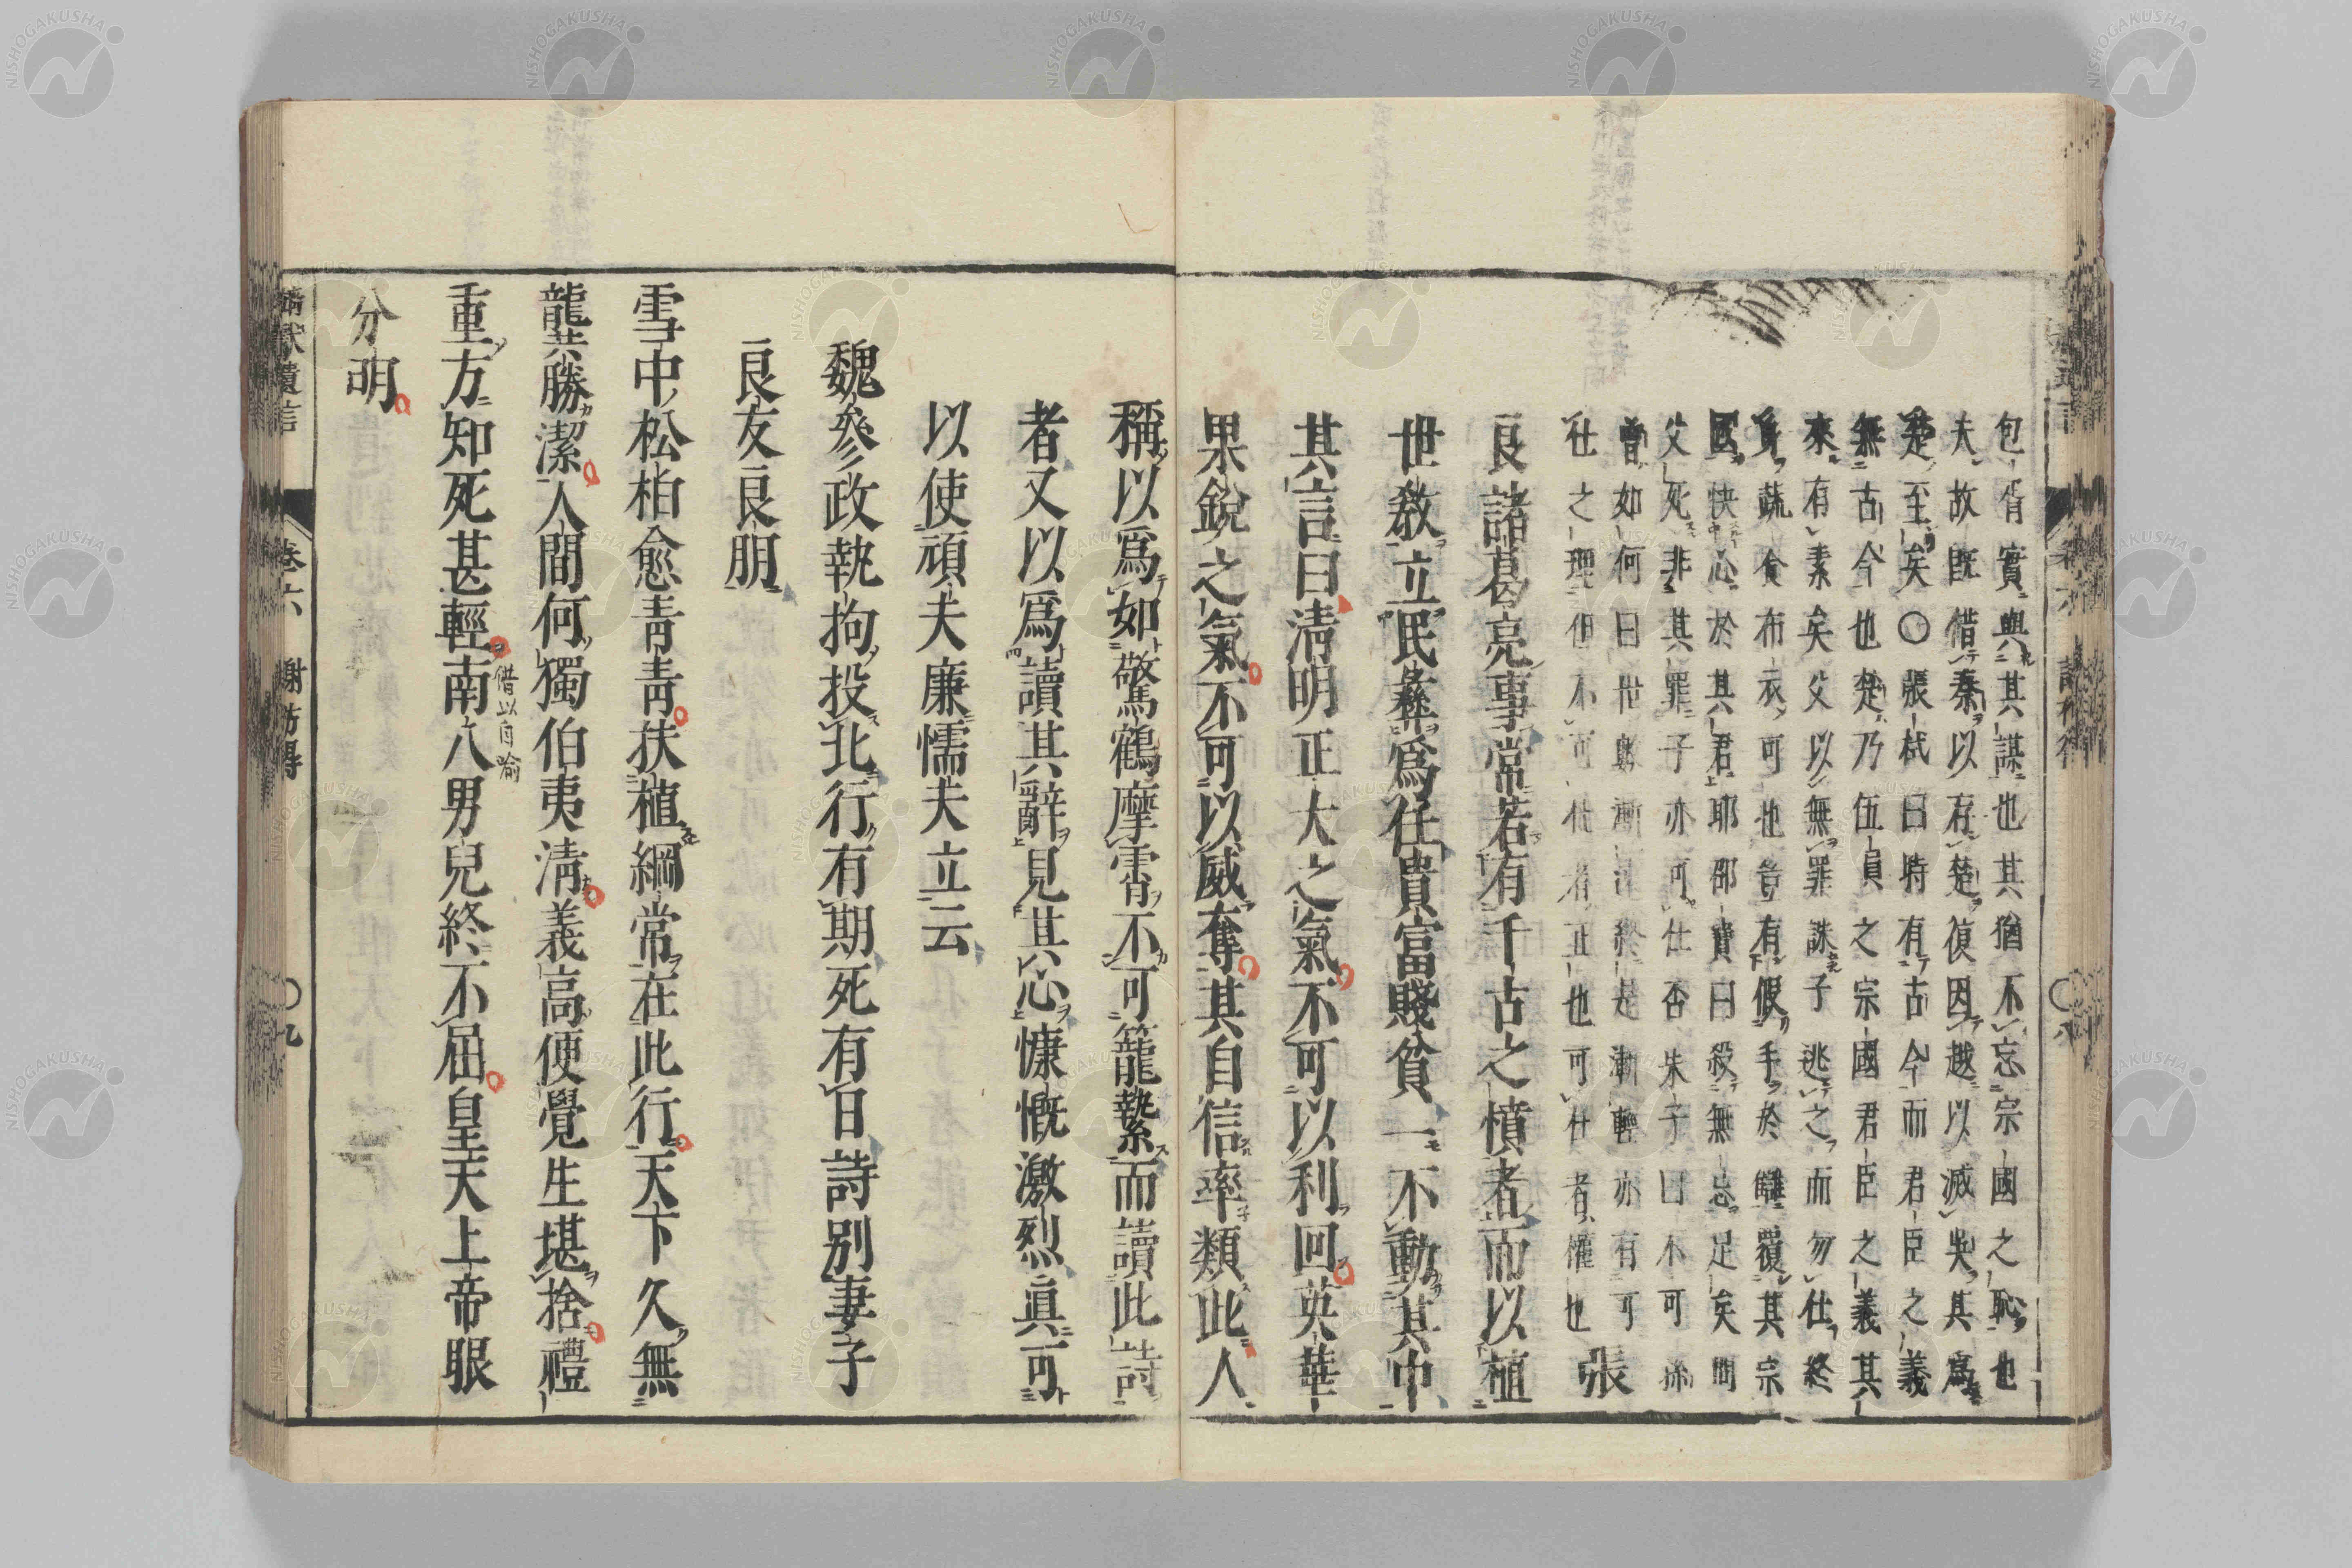 包胥實與其謀也其猶不忘宗國之恥也
夫故既借秦以存楚復因越以滅吳其爲
楚至矣〇張栻曰特有古今而君臣之義
無古今也楚乃伍員之宗國君臣之義其
來有素矣父以無罪誅子逃之而勿仕終
身蔬食布衣可也豈有假手於讎覆其宗
國快心於其君耶邵寶曰殺無忌足矣問
父死非其罪子亦可仕否朱子曰不可孫
曾如何曰世數漸遠終是漸輕亦有可
仕之理但不可仕者正也可仕者權也 張
良諸葛亮事常若有千古之憤者而以植
世教立民彝爲任貴富賤貧一不動其中
其言曰清明正大之氣不可以利回英華
果銳之氣不可以威奪其自信率類此人
稱以爲如驚鶴摩霄不可籠縶而讀此詩
者又以爲讀其辭見其心慷慨激烈眞可
以使頑夫廉懦夫立云
魏參政執拘投北行有期死有日詩別妻子
良友良朋
雪中松柏愈青青扶植綱常在此行天下久無
龔勝潔人間何獨伯夷清義高便覺生堪捨禮
重方知死甚輕南八男兒終不屈皇天上帝眼
借以自喻
分明
卷六 謝枋得 〇九
NISHOGAKUSHA